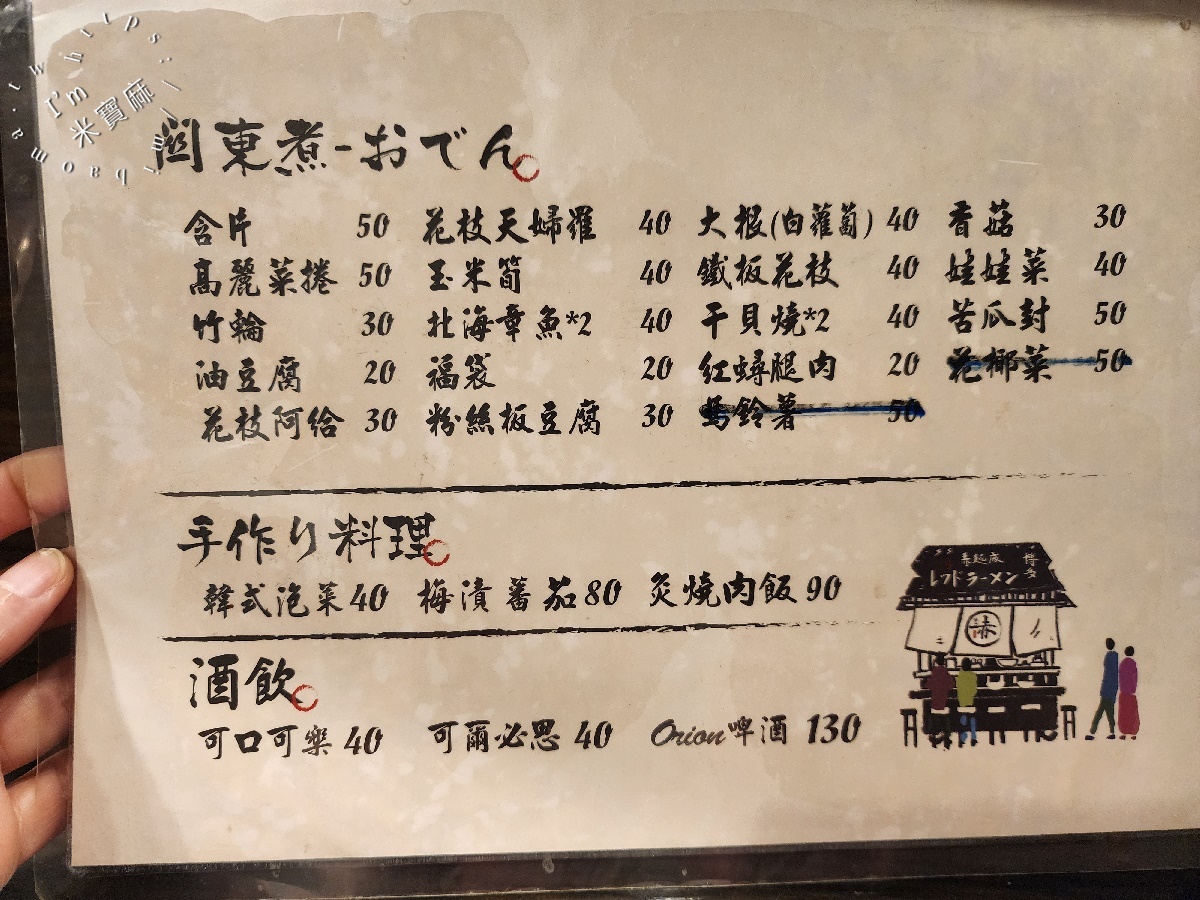 https://mibaoma.tw
I'm 米寶麻
関東煮-おでん
含片 50 花枝天婦羅 40 大根(白蘿蔔) 40 香菇 30
高麗菜捲 50 玉米筍 40 鐵板花枝 40 娃娃菜 40
竹輪 30 北海章魚*2 40 干貝燒*2 40 苦瓜封 50
油豆腐 20 福袋 20 紅蟳腿肉 20 花椰菜 50
花枝阿給 30 粉絲板豆腐 30 馬鈴薯 50
手作り料理
韓式泡菜 40 梅漬蕃茄 80 炙燒肉飯 90
酒飲
可口可樂 40 可爾必思 40 Orion啤酒 130
博多
レフトラーメン